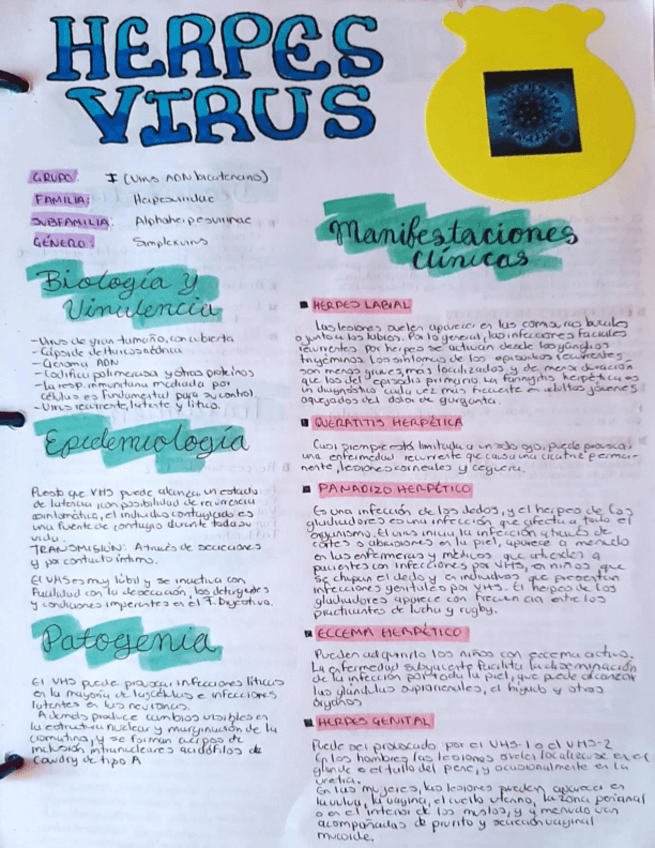 HERPES
VIRUS
GRUPO: I (Virus ADN bicatenario)
FAMILIA: Herpesviridae
SUBFAMILIA: Alphaherpesvirinae
GÉNERO: Simplexvirus
Biología y
Virulencia
-Virus de gran tamaño, con cubierta
-Cápside deltaicosaédrica
-Genoma ADN
-Codifica polimerasa y otras proteínas
-La resp. inmunitaria mediada por
células es fundamental para su control.
-Virus recurrente, latente y lítico.
Epidemiología
Puesto que VHS puede alcanzar un estado
de latencia, con posibilidad de recurrencia
asintomática, el individuo contagiado es
una fuente de contagio durante toda su
vida.
TRANSMISIÓN: A través de secreciones
y por contacto íntimo.
El VHS es muy lábil y se inactiva con
facilidad con la desecación, los detergentes
y condiciones imperantes en el T. Digestivo.
Patogenia
El VHS puede provocar infecciones líticas
en la mayoría de las células e infecciones
latentes en las neuronas.
Además produce cambios visibles en
la estructura nuclear y marginación de la
cromatina, y se forman cuerpos de
inclusión intranucleares acidófilos de
Cowdry de tipo A
Manifestaciones
Clínicas
HERPES LABIAL
Las lesiones suelen aparecer en las comisuras bucales
o junto a los labios. Por lo general, las infecciones faciales
recurrentes por herpes se activan desde los ganglios
trigéminos. Los síntomas de los episodios recurrentes
son menos graves, más localizados y de menor duración
que los del episodio primario. La faringitis herpética es
un diagnóstico cada vez más frecuente en adultos jóvenes
aquejados del dolor de garganta.
QUERATITIS HERPÉTICA
Casi siempre está limitada a un solo ojo, puede provocar
una enfermedad recurrente que causa una cicatriz perma-
nente, lesiones corneales y ceguera.
PANADIZO HERPÉTICO
Es una infección de los dedos, y el herpes de los
gladiadores es una infección que afecta a todo el
organismo. El virus inicia la infección a través de
cortes o abrasiones en la piel, aparece a menudo
en las enfermeras y médicos que atienden a
pacientes con infecciones por VHS, en niños que
se chupan el dedo y en individuos que presentan
infecciones genitales por VHS. El herpes de los
gladiadores aparece con frecuencia entre los
practicantes de lucha y rugby.
ECCEMA HERPÉTICO
Pueden adquirirlo los niños con eccema activo.
La enfermedad subyacente facilita la diseminación
de la infección por toda la piel, que puede alcanzar
las glándulas suprarrenales, el hígado y otros
órganos
HERPES GENITAL
Puede ser provocado por el VHS-1 o el VHS-2
En los hombres las lesiones suelen localizarse en el
glande o el tallo del pene, y ocasionalmente en la
uretra.
En las mujeres, las lesiones pueden aparecer en
la vulva, la vagina, el cuello uterino, la zona perianal
o en el interior de los muslos, y a menudo van
acompañadas de prurito y secreción vaginal
mucoide.